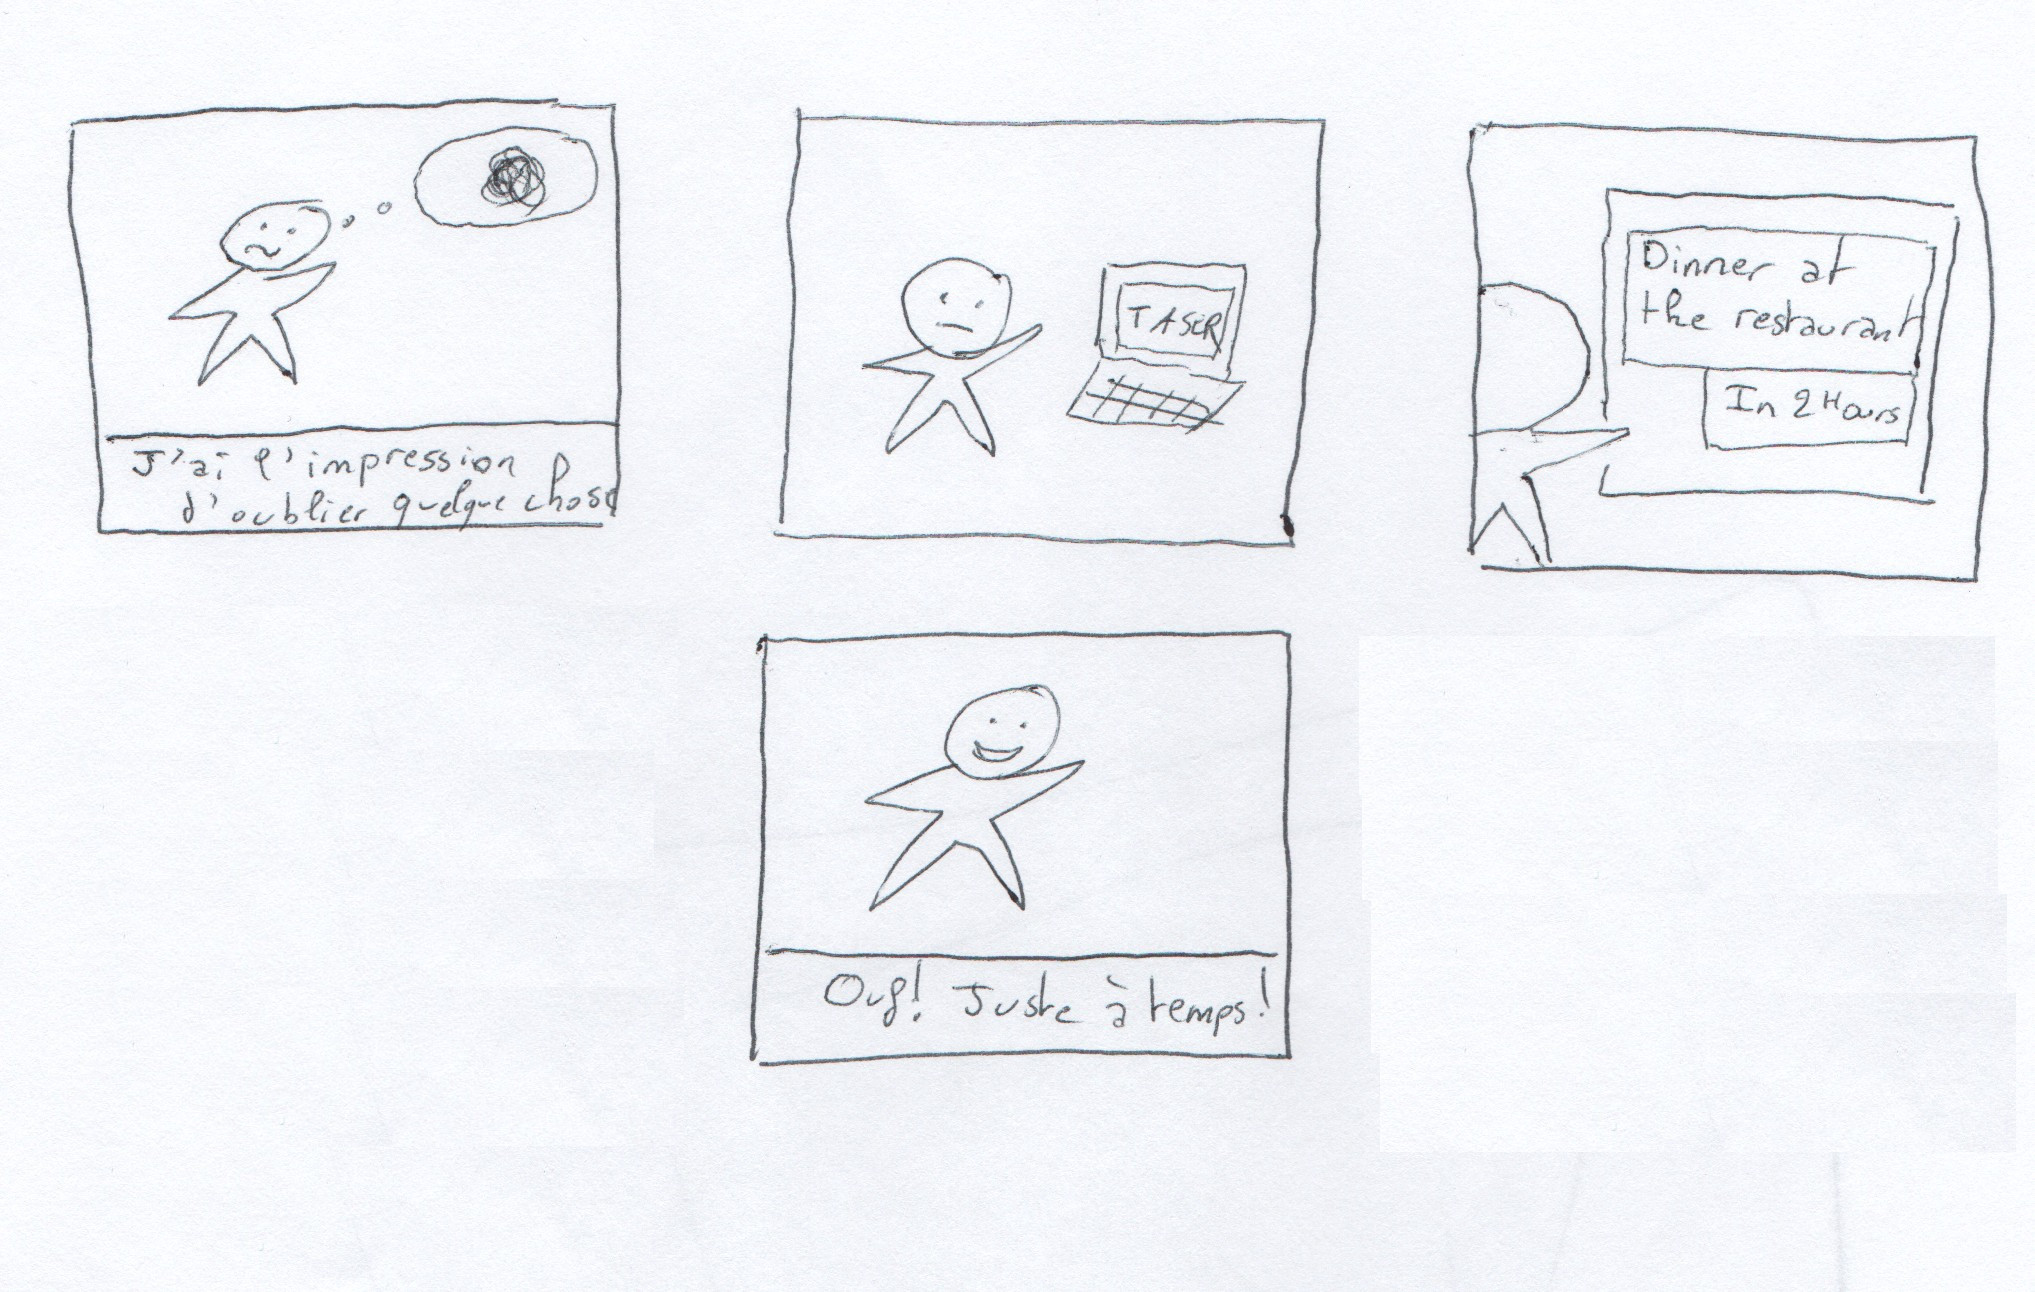 J'ai l'impression
d'oublier quelque chose
TASER
Dinner at
the restaurant
In 2 Hours
Ouf! Juste à temps!